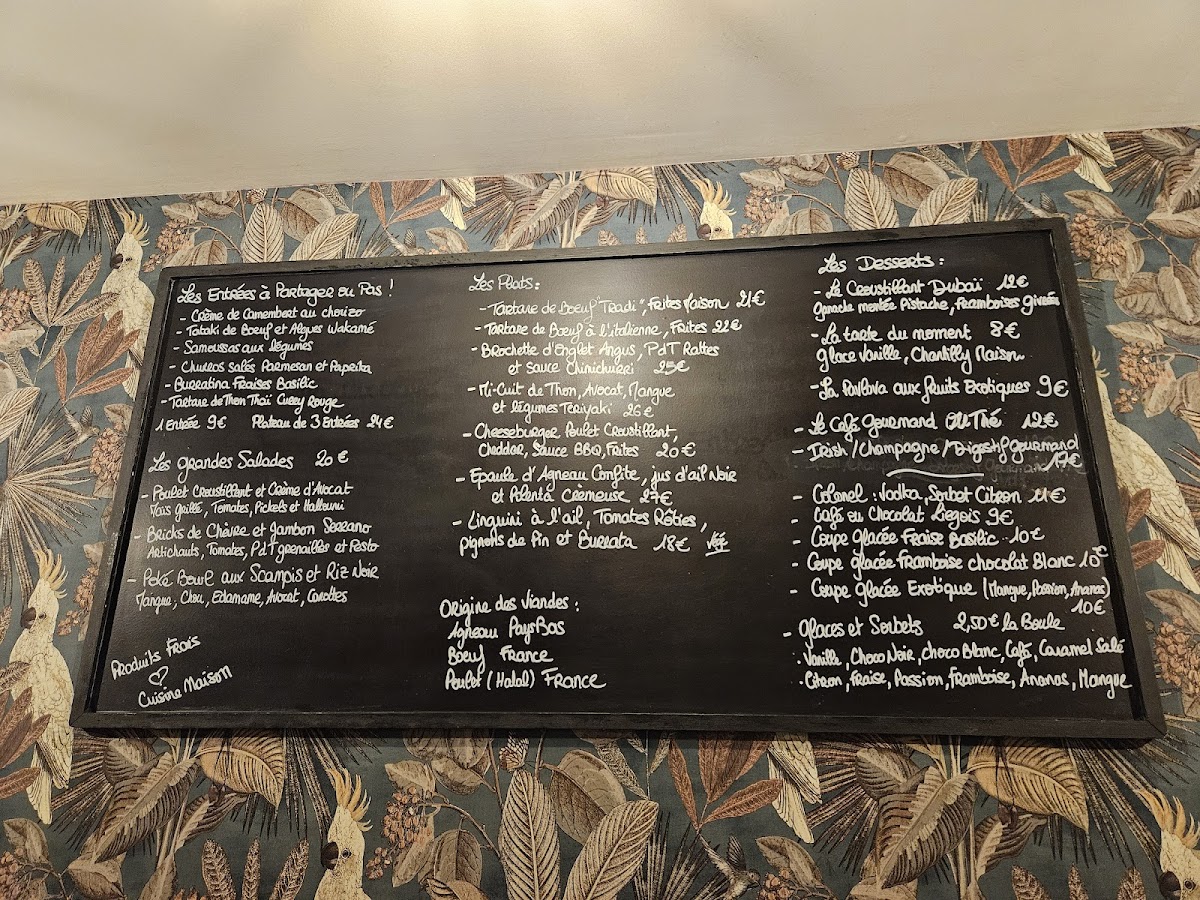 Les Entrées à Partager ou Pas !
- Crème de Camembert au chorizo
- Tataki de Boeuf et Algues Wakamé
- Samoussas aux légumes
- Churros salés Parmesan et Paprika
- Burratina Fraises Basilic
- Tartare de Thon Thaï Curry Rouge
1 Entrée 9€ Plateau de 3 Entrées 24€
Les grandes Salades 20€
- Poulet Croustillant et Crème d'Avocat
Maïs Grillé, Tomates, Pickels et Halloumi
- Bricks de Chèvre et Jambon Serrano
Artichauts, Tomates, PdT grenailles et Pesto
- Poké Bowl aux Scampis et Riz Noir
Mangue, Chou, Edamame, Avocat, Carottes
Produits Frais
Cuisine Maison
Les Plats :
- Tartare de Boeuf "Tradi", Frites Maison 21€
- Tartare de Boeuf à l'italienne, Frites 22€
- Brochette d'Onglet Angus, PdT Rattes
et sauce Chimichurri 25€
- Mi-Cuit de Thon, Avocat, Mangue
et légumes Teriyaki 26€
- Cheeseburger Poulet Croustillant,
Cheddar, Sauce BBQ, Frites 20€
- Epaule d'Agneau Confite, jus d'ail Noir
et Polenta Crémeuse 27€
- Linguini à l'ail, Tomates Rôties,
pignons de Pin et Burrata 18€ Vég
Origine des Viandes :
Agneau Pays Bas
Boeuf France
Poulet (Halal) France
Les Desserts :
- Le Croustillant Dubaï 12€
Ganache montée Pistache, Framboises givrées
- La tarte du moment 8€
Glace Vanille, Chantilly Maison
- La Pavlova aux fruits Exotiques 9€
- Le Café Gourmand OU Thé 12€
- Irish / Champagne / Digestif gourmand
17€
- Colonel : Vodka, Sorbet Citron 11€
- Café ou Chocolat Liegois 9€
- Coupe Glacée Fraise Basilic 10€
- Coupe glacée Framboise chocolat Blanc 10€
- Coupe glacée Exotique (Mangue, Passion, Ananas)
10€
- Glaces et Sorbets 2,50€ la Boule
· Vanille, Choco Noir, choco Blanc, Café, Caramel Salé
· Citron, Fraise, Passion, Framboise, Ananas, Mangue